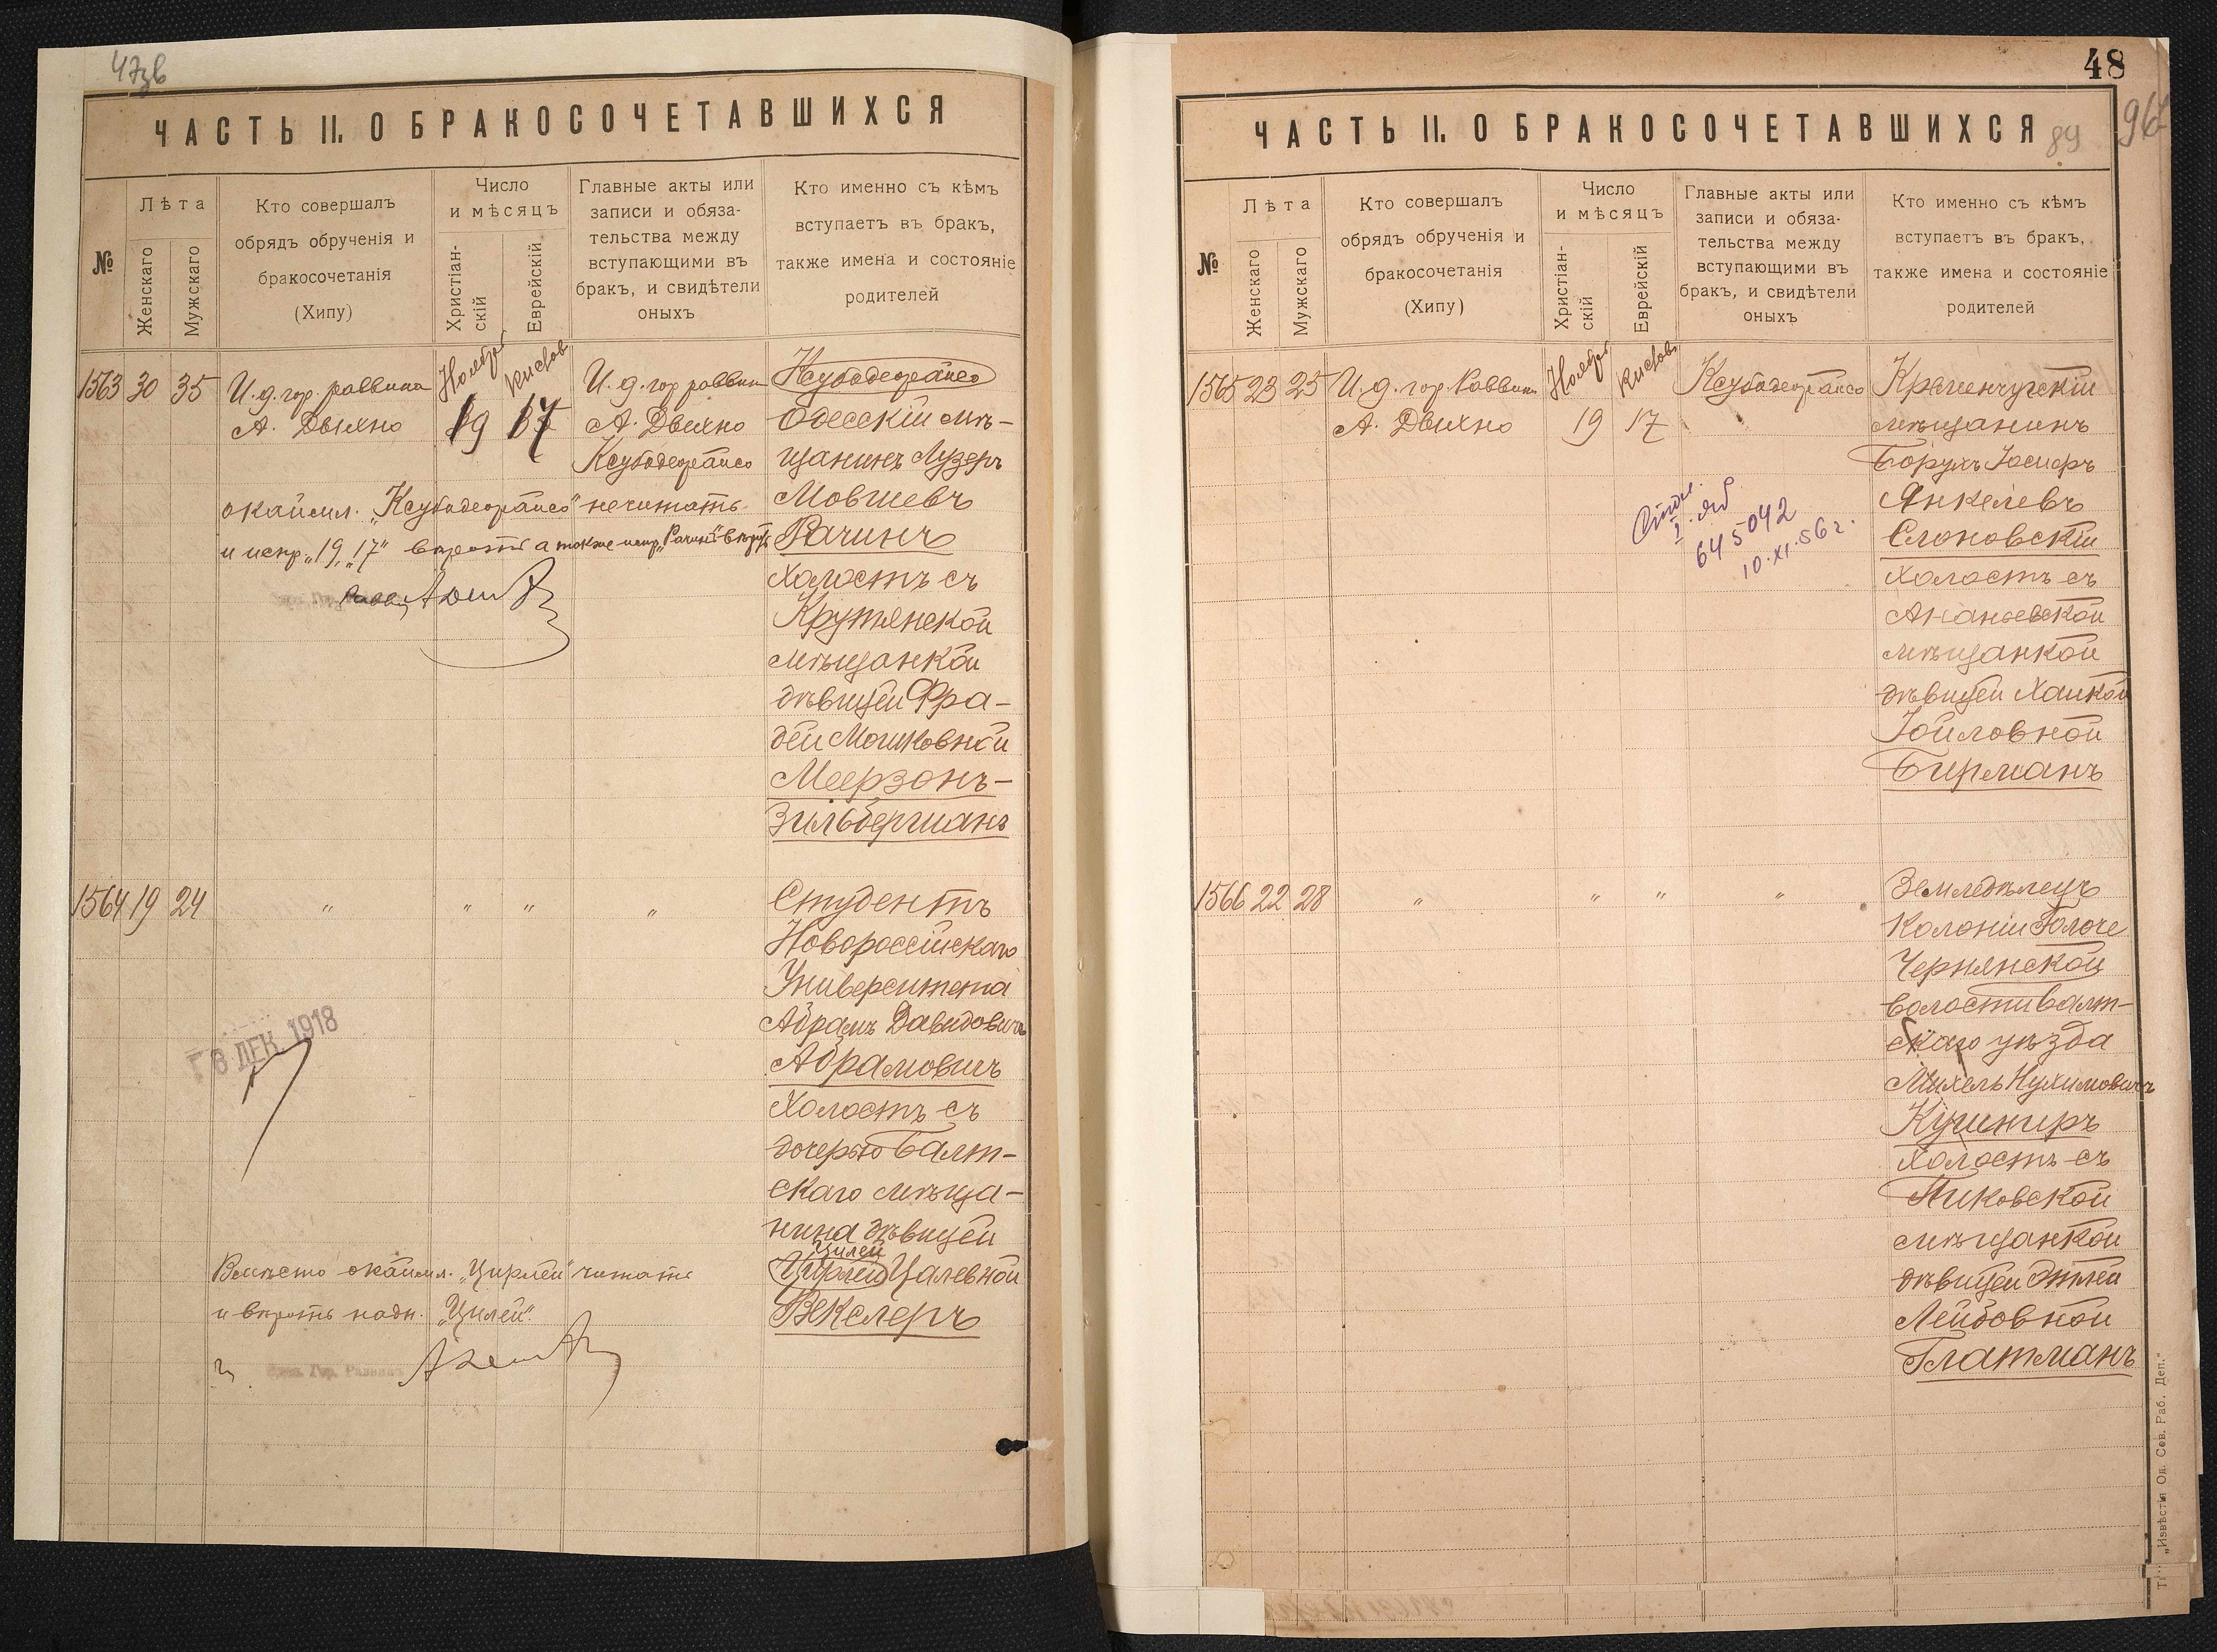 47зв
ЧАСТЬ II. О БРАКОСОЧЕТАВШИХСЯ
№
Лѣта
Женскаго
Мужскаго
Кто совершалъ
обрядъ обрученія и
бракосочетанія
(Хипу)
Число
и мѣсяцъ
Христіан-
скій
Еврейскій
Главные акты или
записи и обяза-
тельства между
вступающими въ
бракъ, и свидѣтели
оныхъ
Кто именно съ кѣмъ
вступаетъ въ бракъ,
также имена и состояніе
родителей
1563 30 35
И. д. гор. раввина
А. Двихно
Ноября
19
Кислев
17
И. д. гор раввин
А. Двихно
Ксубодеорайсо
Ксубодеорайсо
Одесскій мѣ-
щанинъ Лузеръ
Мовшевъ
Рачинъ
холостъ съ
Крутянской
мѣщанкой
дѣвицей Фра-
дей Мошковной
Меерзонъ-
Зильберманъ
окаймл. „Ксубодеорайсо" нечитать
и испр. „19, „17" вѣрить а также испр. „Рачинъ" вѣрить
1564 19 24
" " " "
Студентъ
Новороссійскаго
Университета
Абрамъ Давидовичъ
Абрамовичъ
холостъ съ
дочерью Балт-
скаго мѣща-
нина дѣвицей
Цилей
Цирлей Цалевной
Векслеръ
ДЕК. 1918
Вмѣсто окаймл. „Цирлей" читать
и вѣрить надп. „Цилей".
48
96
89
ЧАСТЬ II. О БРАКОСОЧЕТАВШИХСЯ
№
Лѣта
Женскаго
Мужскаго
Кто совершалъ
обрядъ обрученія и
бракосочетанія
(Хипу)
Число
и мѣсяцъ
Христіан-
скій
Еврейскій
Главные акты или
записи и обяза-
тельства между
вступающими въ
бракъ, и свидѣтели
оныхъ
Кто именно съ кѣмъ
вступаетъ въ бракъ,
также имена и состояніе
родителей
1565 23 25
И. д. гор. Раввин
А. Двихно
Ноября
19
Кислев
17
Ксубодеорайсо
Кременчугскій
мѣщанинъ
Борухъ Іосифъ
Янкелевъ
Слоновскій
холостъ съ
Ананьевской
мѣщанкой
дѣвицей Хайкой
Іойловной
Бирманъ
645042
10.XI.56г.
1566 22 28
" " " "
Земледѣлецъ
Колоніи Голоче
Чернянской
волости Балт-
скаго уѣзда
Михель Нухимовичъ
Кушниръ
холостъ съ
Пиковской
мѣщанкой
дѣвицей Этлей
Лейбовной
Глатманъ
„Извѣстія Од. Сов. Раб. Деп."